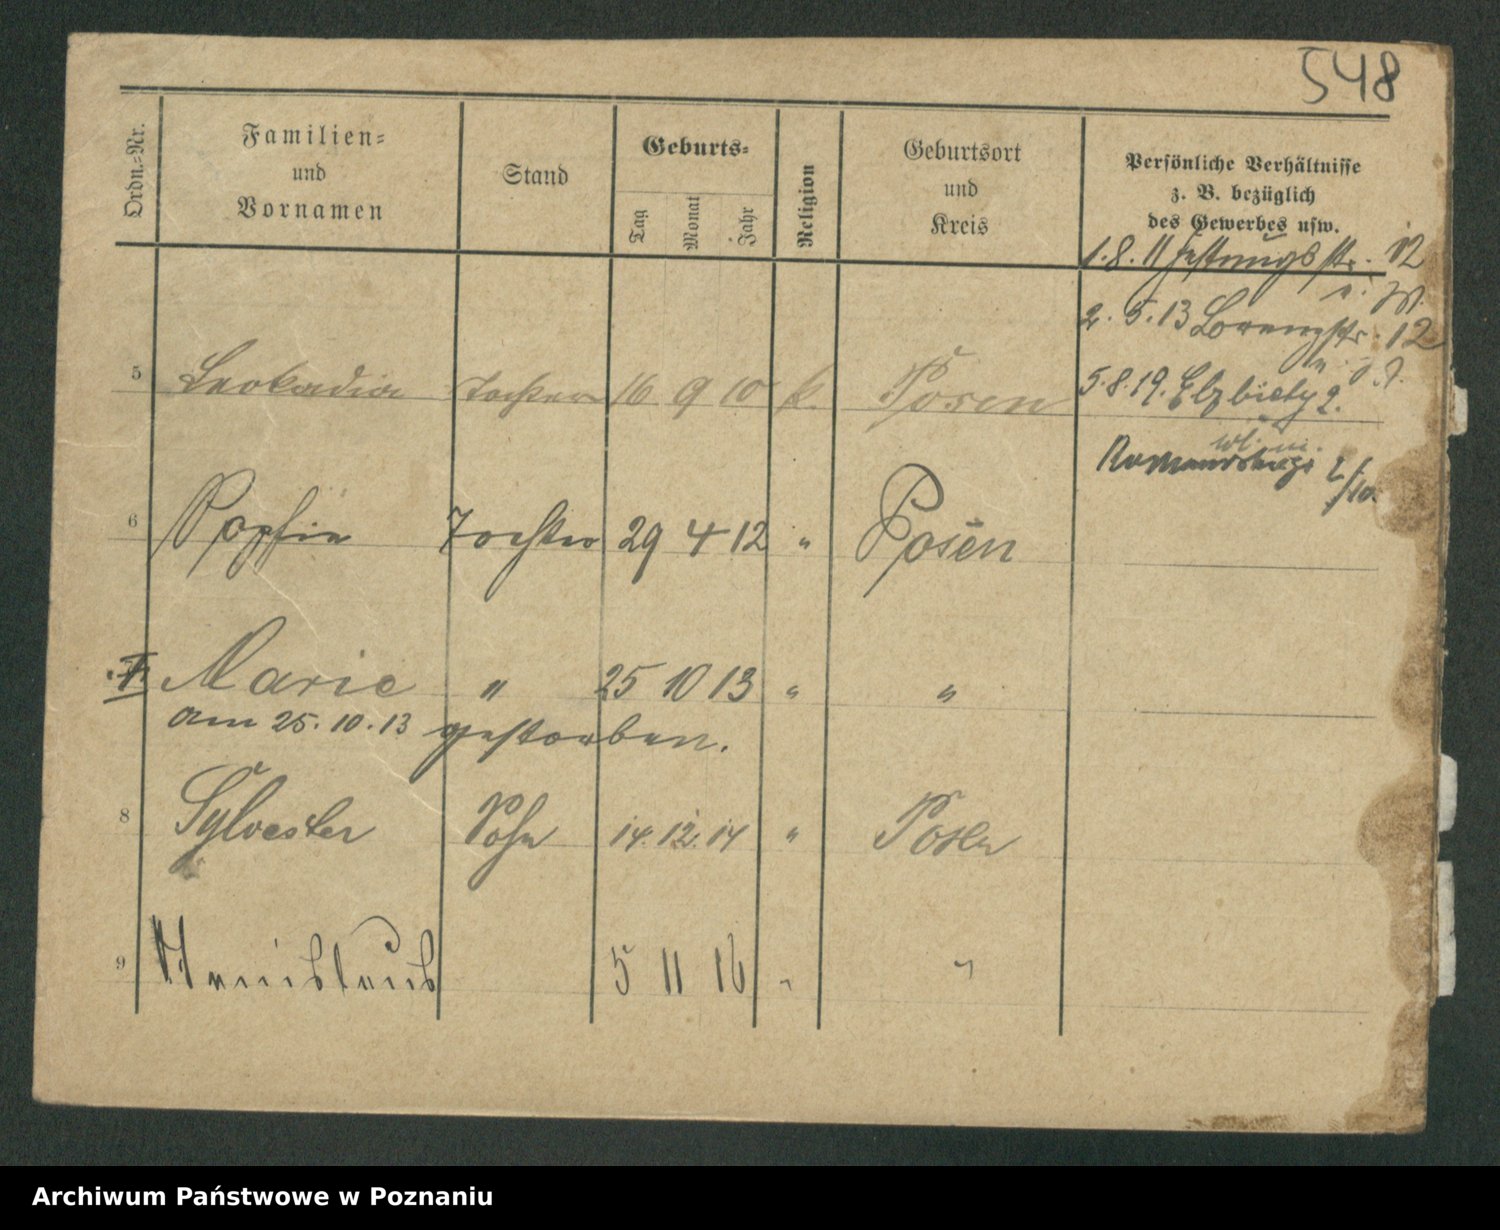 548
Ordn.-Nr.
Familien-
und
Vornamen
Stand
Geburts-
Tag
Monat
Jahr
Religion
Geburtsort
und
Kreis
Persönliche Verhältnisse
z. B. bezüglich
des Gewerbes usw.
1. 8. 11 Festungsstr. 12
2. 5. 13 Lorenzstr. 12
5. 8. 19. Elzbiety 2.
5 Leokadia Tochter 16 9 10 k. Posen
6 Sophie Tochter 29 4 12 " Posen
Marie " 25 10 13 " "
am 25. 10. 13 gestorben.
8 Sylvester Sohn 14. 12. 14 " Posen
9 5 11 16 " "
Archiwum Państwowe w Poznaniu